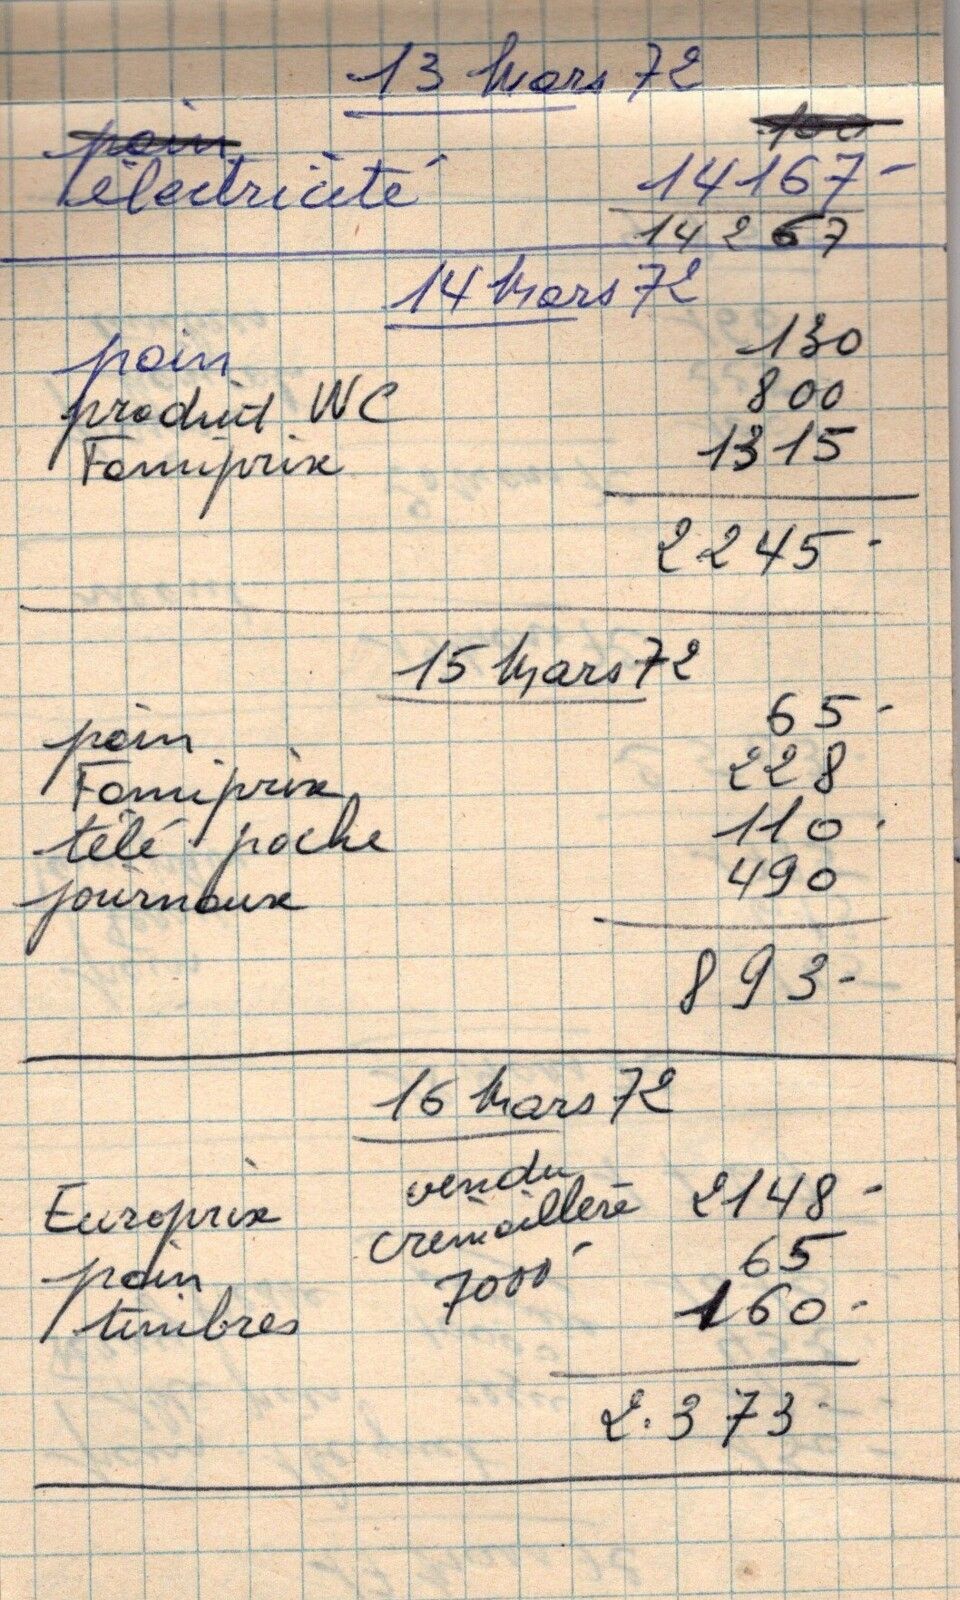 13 Mars 72
pain 100
électricité 14167-
14267
14 Mars 72
pain 130
produit WC 800
Famiprix 1315
2245-
15 Mars 72
pain 65-
Famiprix 228
télé poche 110.
journaux 490
893-
16 Mars 72
Europrix vendu 2148-
crémaillère
pain 7000- 65
timbres 160-
2.373-